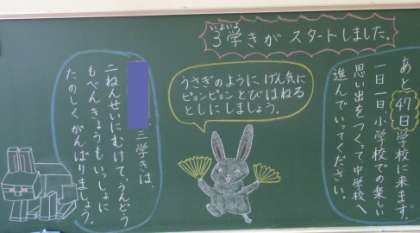 いよいよ
3学きが スタートしました。
あと 49日 学校に来ます。
一日一日小学校での楽しい
思い出をつくって中学校へ
進んでいってください。
うさぎのように、げん気に
ピョンピョンとびはねる
としにしましょう。
三学きは
二ねんせいにむけて、うんどう
もべんきょうもいっしょに
たのしくがんばりましょう。